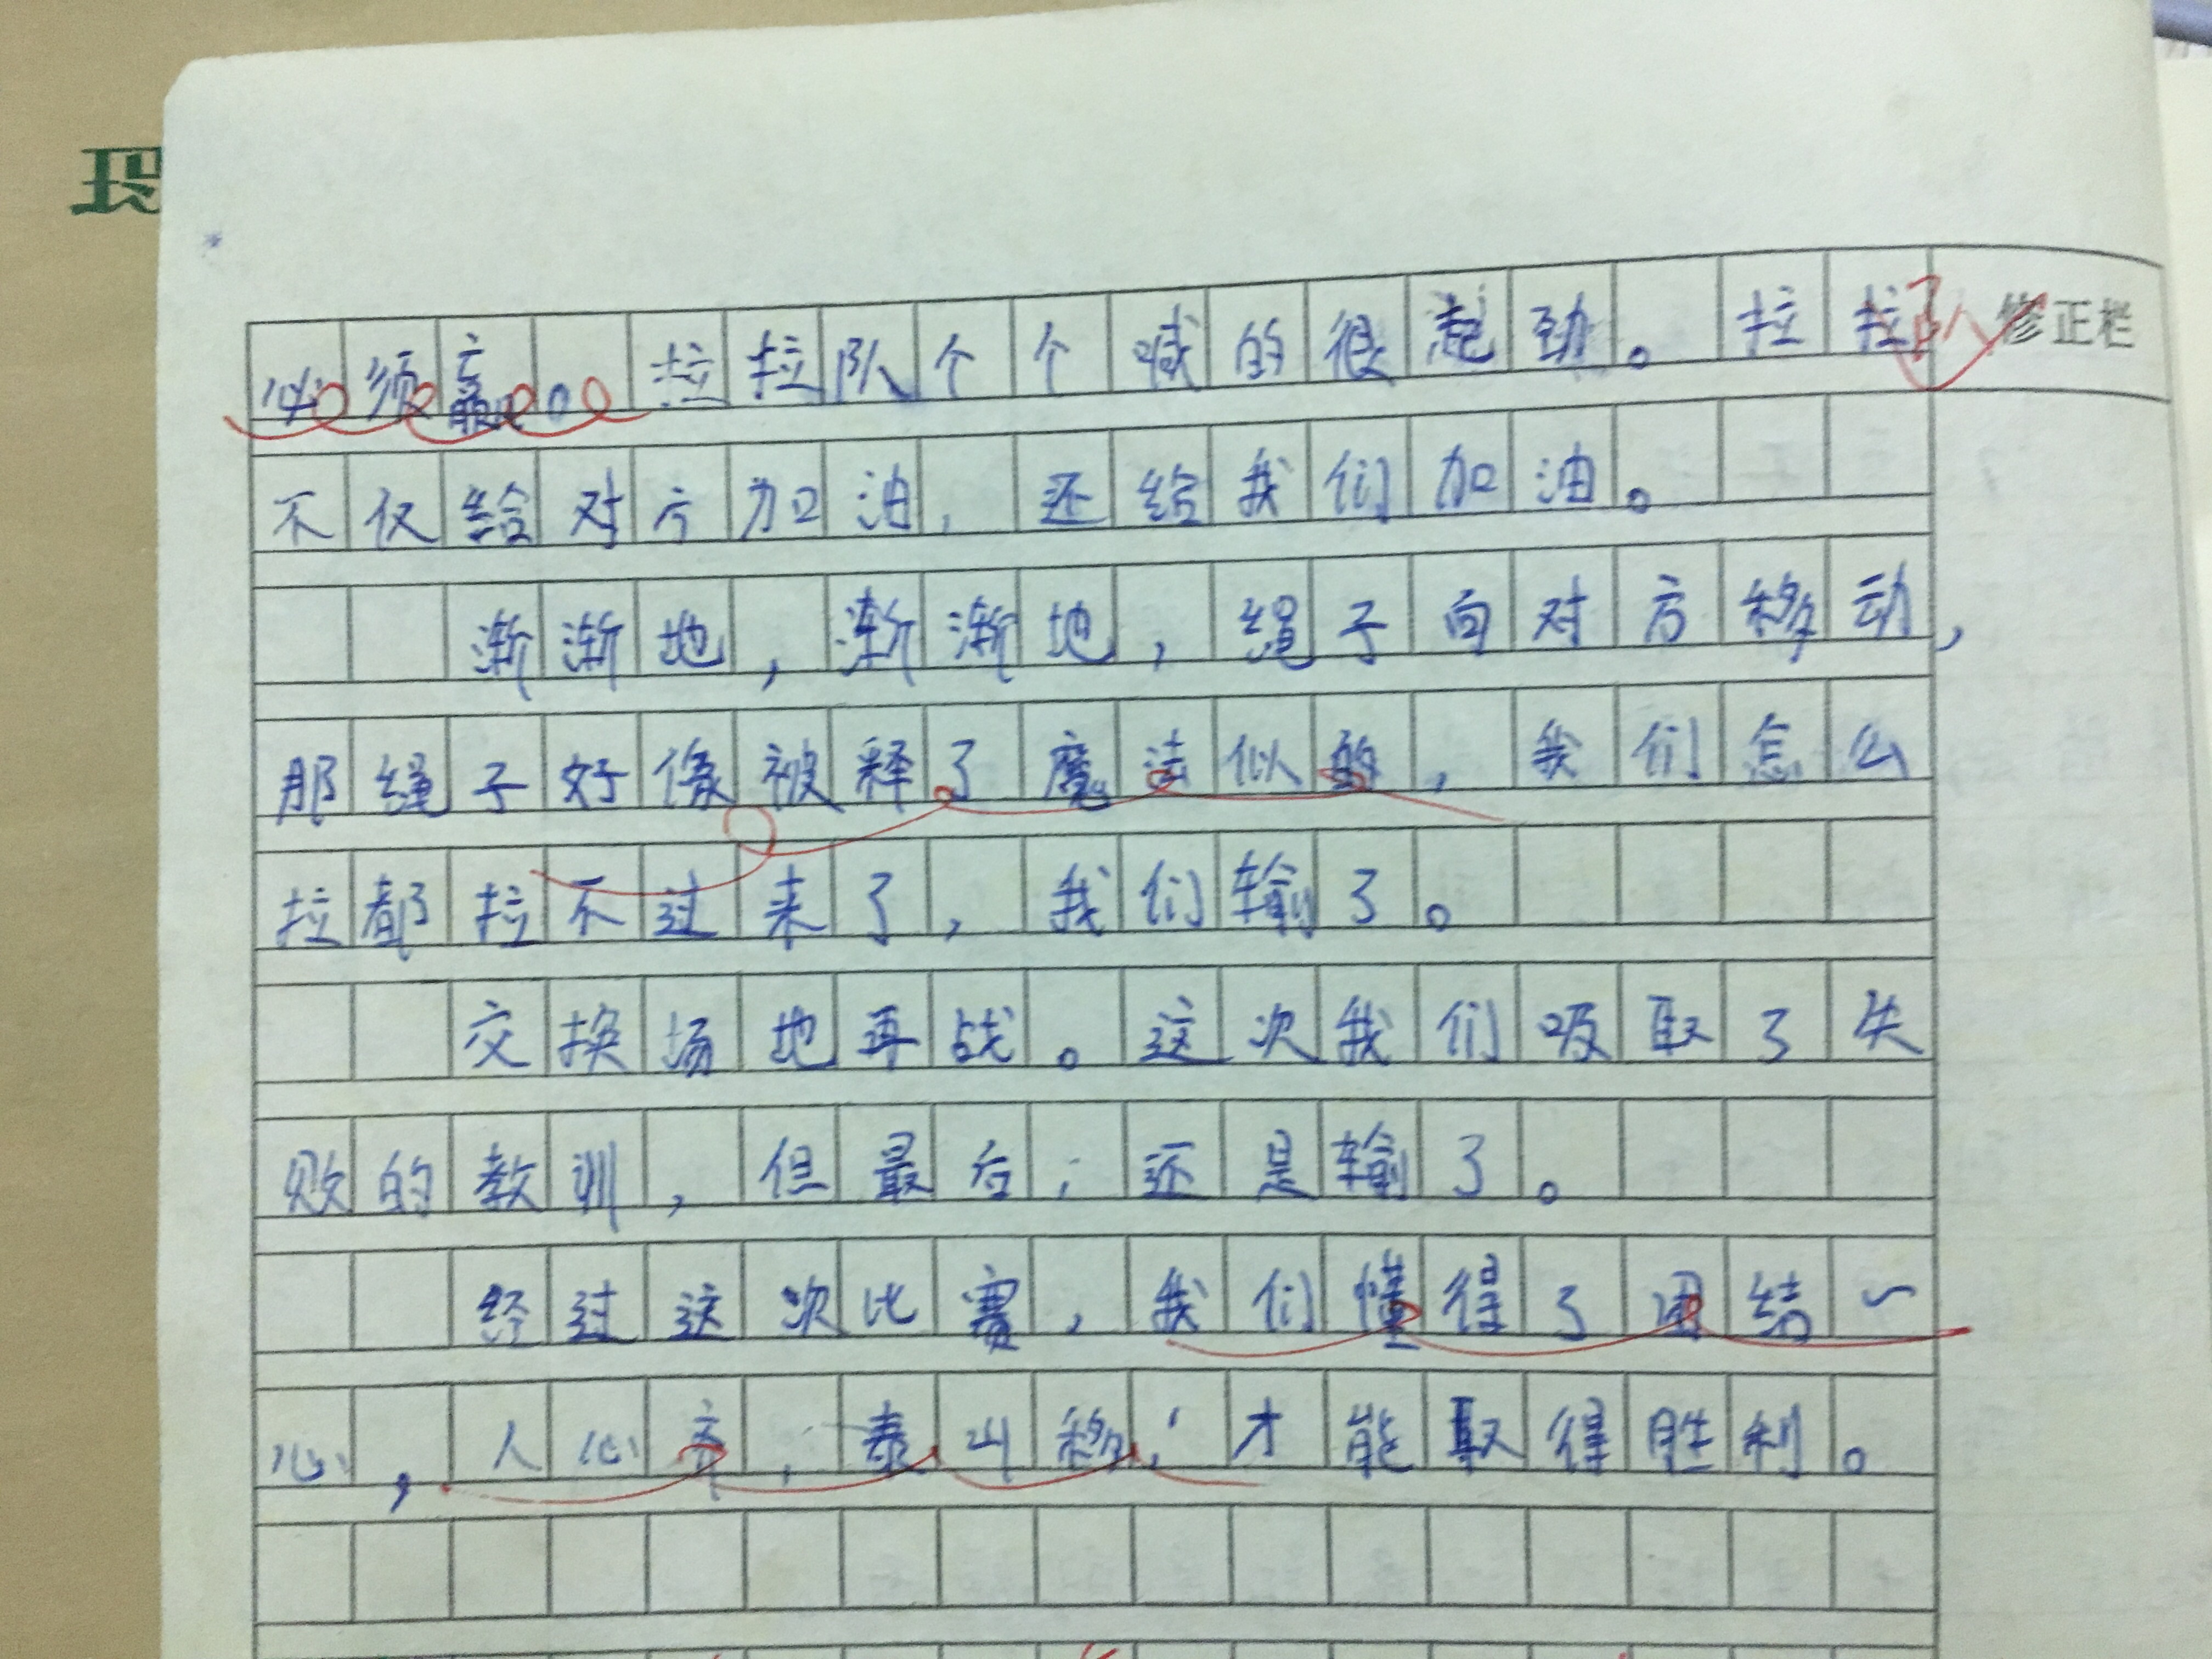 必须赢。。拉拉队个个喊的很起劲。拉拉队
修正栏
不仅给对方加油,还给我们加油。
渐渐地,渐渐地,绳子向对方移动,
那绳子好像被释了魔法似的,我们怎么
拉都拉不过来了,我们输了。
交换场地再战。这次我们吸取了失
败的教训,但最后,还是输了。
经过这次比赛,我们懂得了团结一
心,人心齐,泰山移,才能取得胜利。